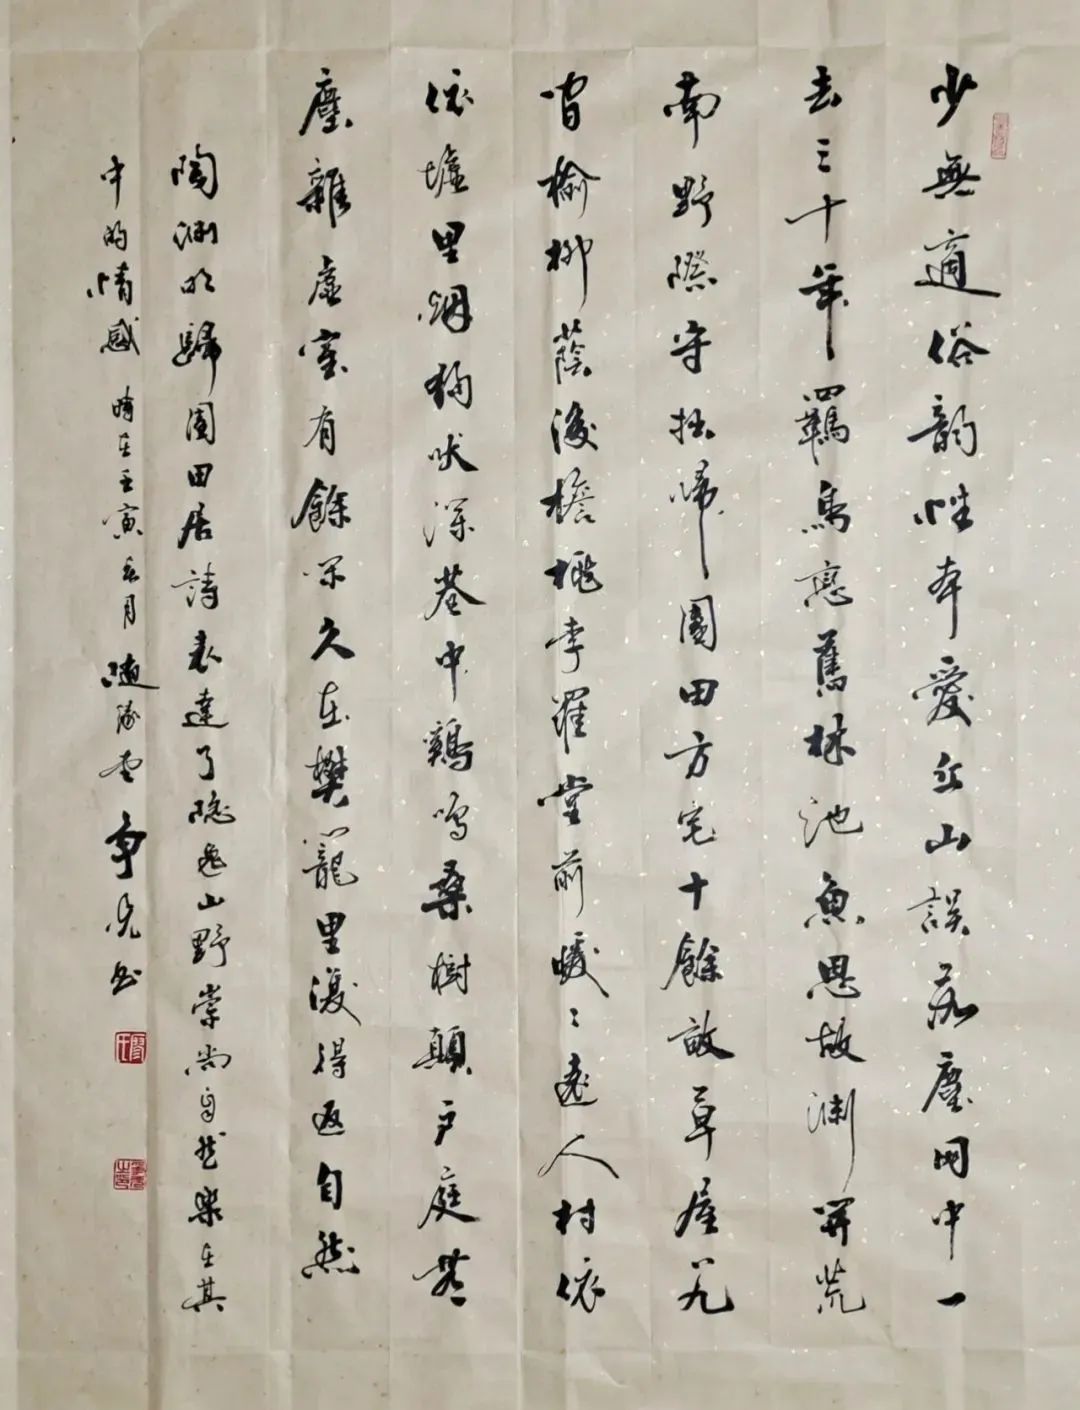 少無適俗韵性本愛丘山誤落塵网中一
去三十年羈鳥戀舊林池魚思故渊開荒
南野際守拙歸園田方宅十餘畝草屋八九
間榆柳蔭後檐桃李羅堂前曖曖遠人村依
依墟里烟狗吠深巷中鷄鳴桑樹顛户庭無
塵雜虚室有餘閑久在樊籠里復得返自然
陶渊明歸園田居詩表達了隐逸山野崇尚自然樂在其
中的情感 時在壬寅春月